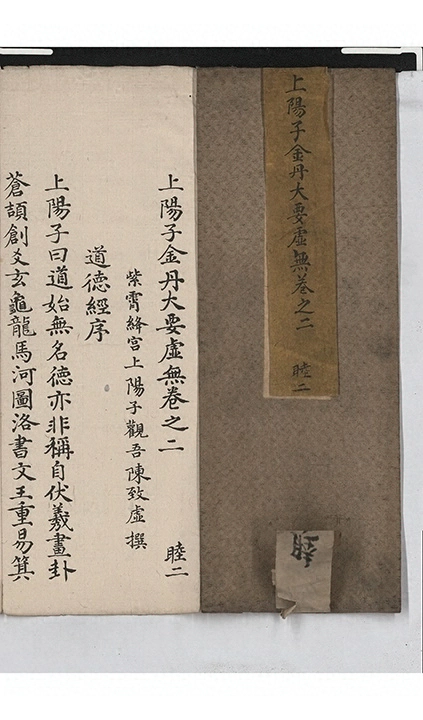 上陽子金丹大要虛無卷之二 睦二
上陽子金丹大要虛無卷之二 睦二
紫霄絳宮上陽子觀吾陳致虛撰
道德經序
上陽子曰道始無名德亦非稱自伏羲畫卦
蒼頡創文玄龜龍馬河圖洛書文王重易箕